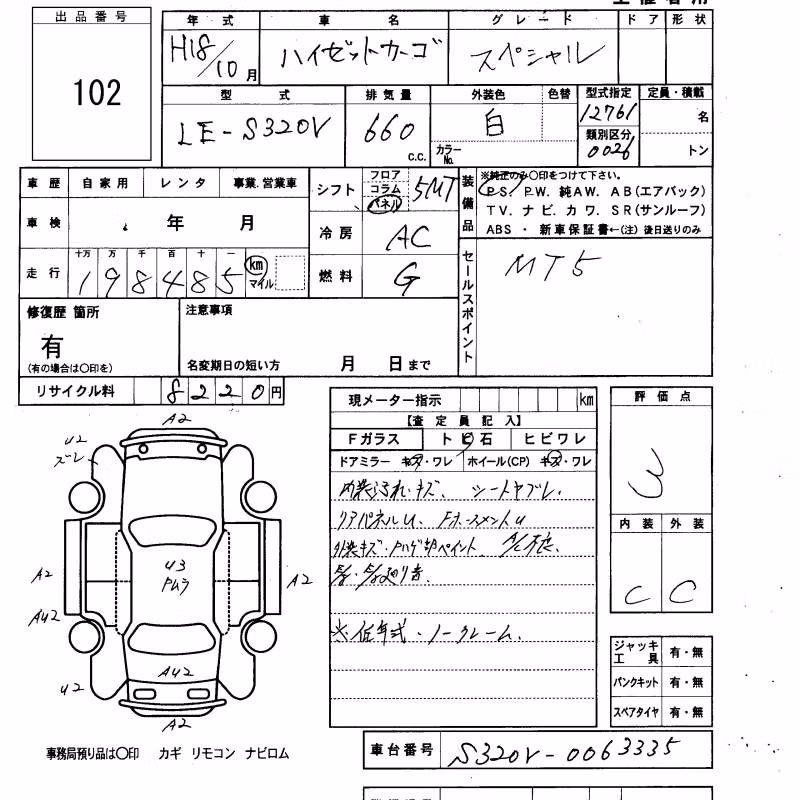 出品番号
102
年式 車名 グレード ドア 形状
H18/10月 ハイゼットカーゴ スペシャル
型式 排気量 外装色 色替 型式指定 定員・積載
LE-S320V 660 c.c. 白 カラーNo. 12761 名
類別区分
0026 トン
車歴 自家用 レンタ 事業.営業車
シフト フロア コラム パネル 5MT
装備品
※純正のみ〇印をつけて下さい。
PS. PW. 純AW. AB(エアバック)
TV. ナビ. カワ. SR(サンルーフ)
ABS ・ 新車保証書←(注) 後日送りのみ
車検 年 月
冷房 AC
走行 十万 万 千 百 十 一
198485 km マイル
燃料 G
セールスポイント
MT5
修復歴 箇所
有
(有の場合は〇印を)
注意事項
名変期日の短い方 月 日まで
リサイクル料 8220円
現メーター指示 km
【査定員記入】
Fガラス トビ石 ヒビワレ
ドアミラー キズ・ワレ ホイール(CP) キズ・ワレ
内装汚れ・キズ シートヤブレ.
リアパネルU、
外装キズ・ ペイント A/C不良.
※低年式・ノークレーム.
評価点
3
内装 外装
C C
ジャッキ工具 有・無
パンクキット 有・無
スペアタイヤ 有・無
A2
U2
ズレ
A2
AU2
U2
U3
Pムラ
A2
AU2
A2
事務局預り品は〇印 カギ リモコン ナビロム
車台番号 S320V-0063335